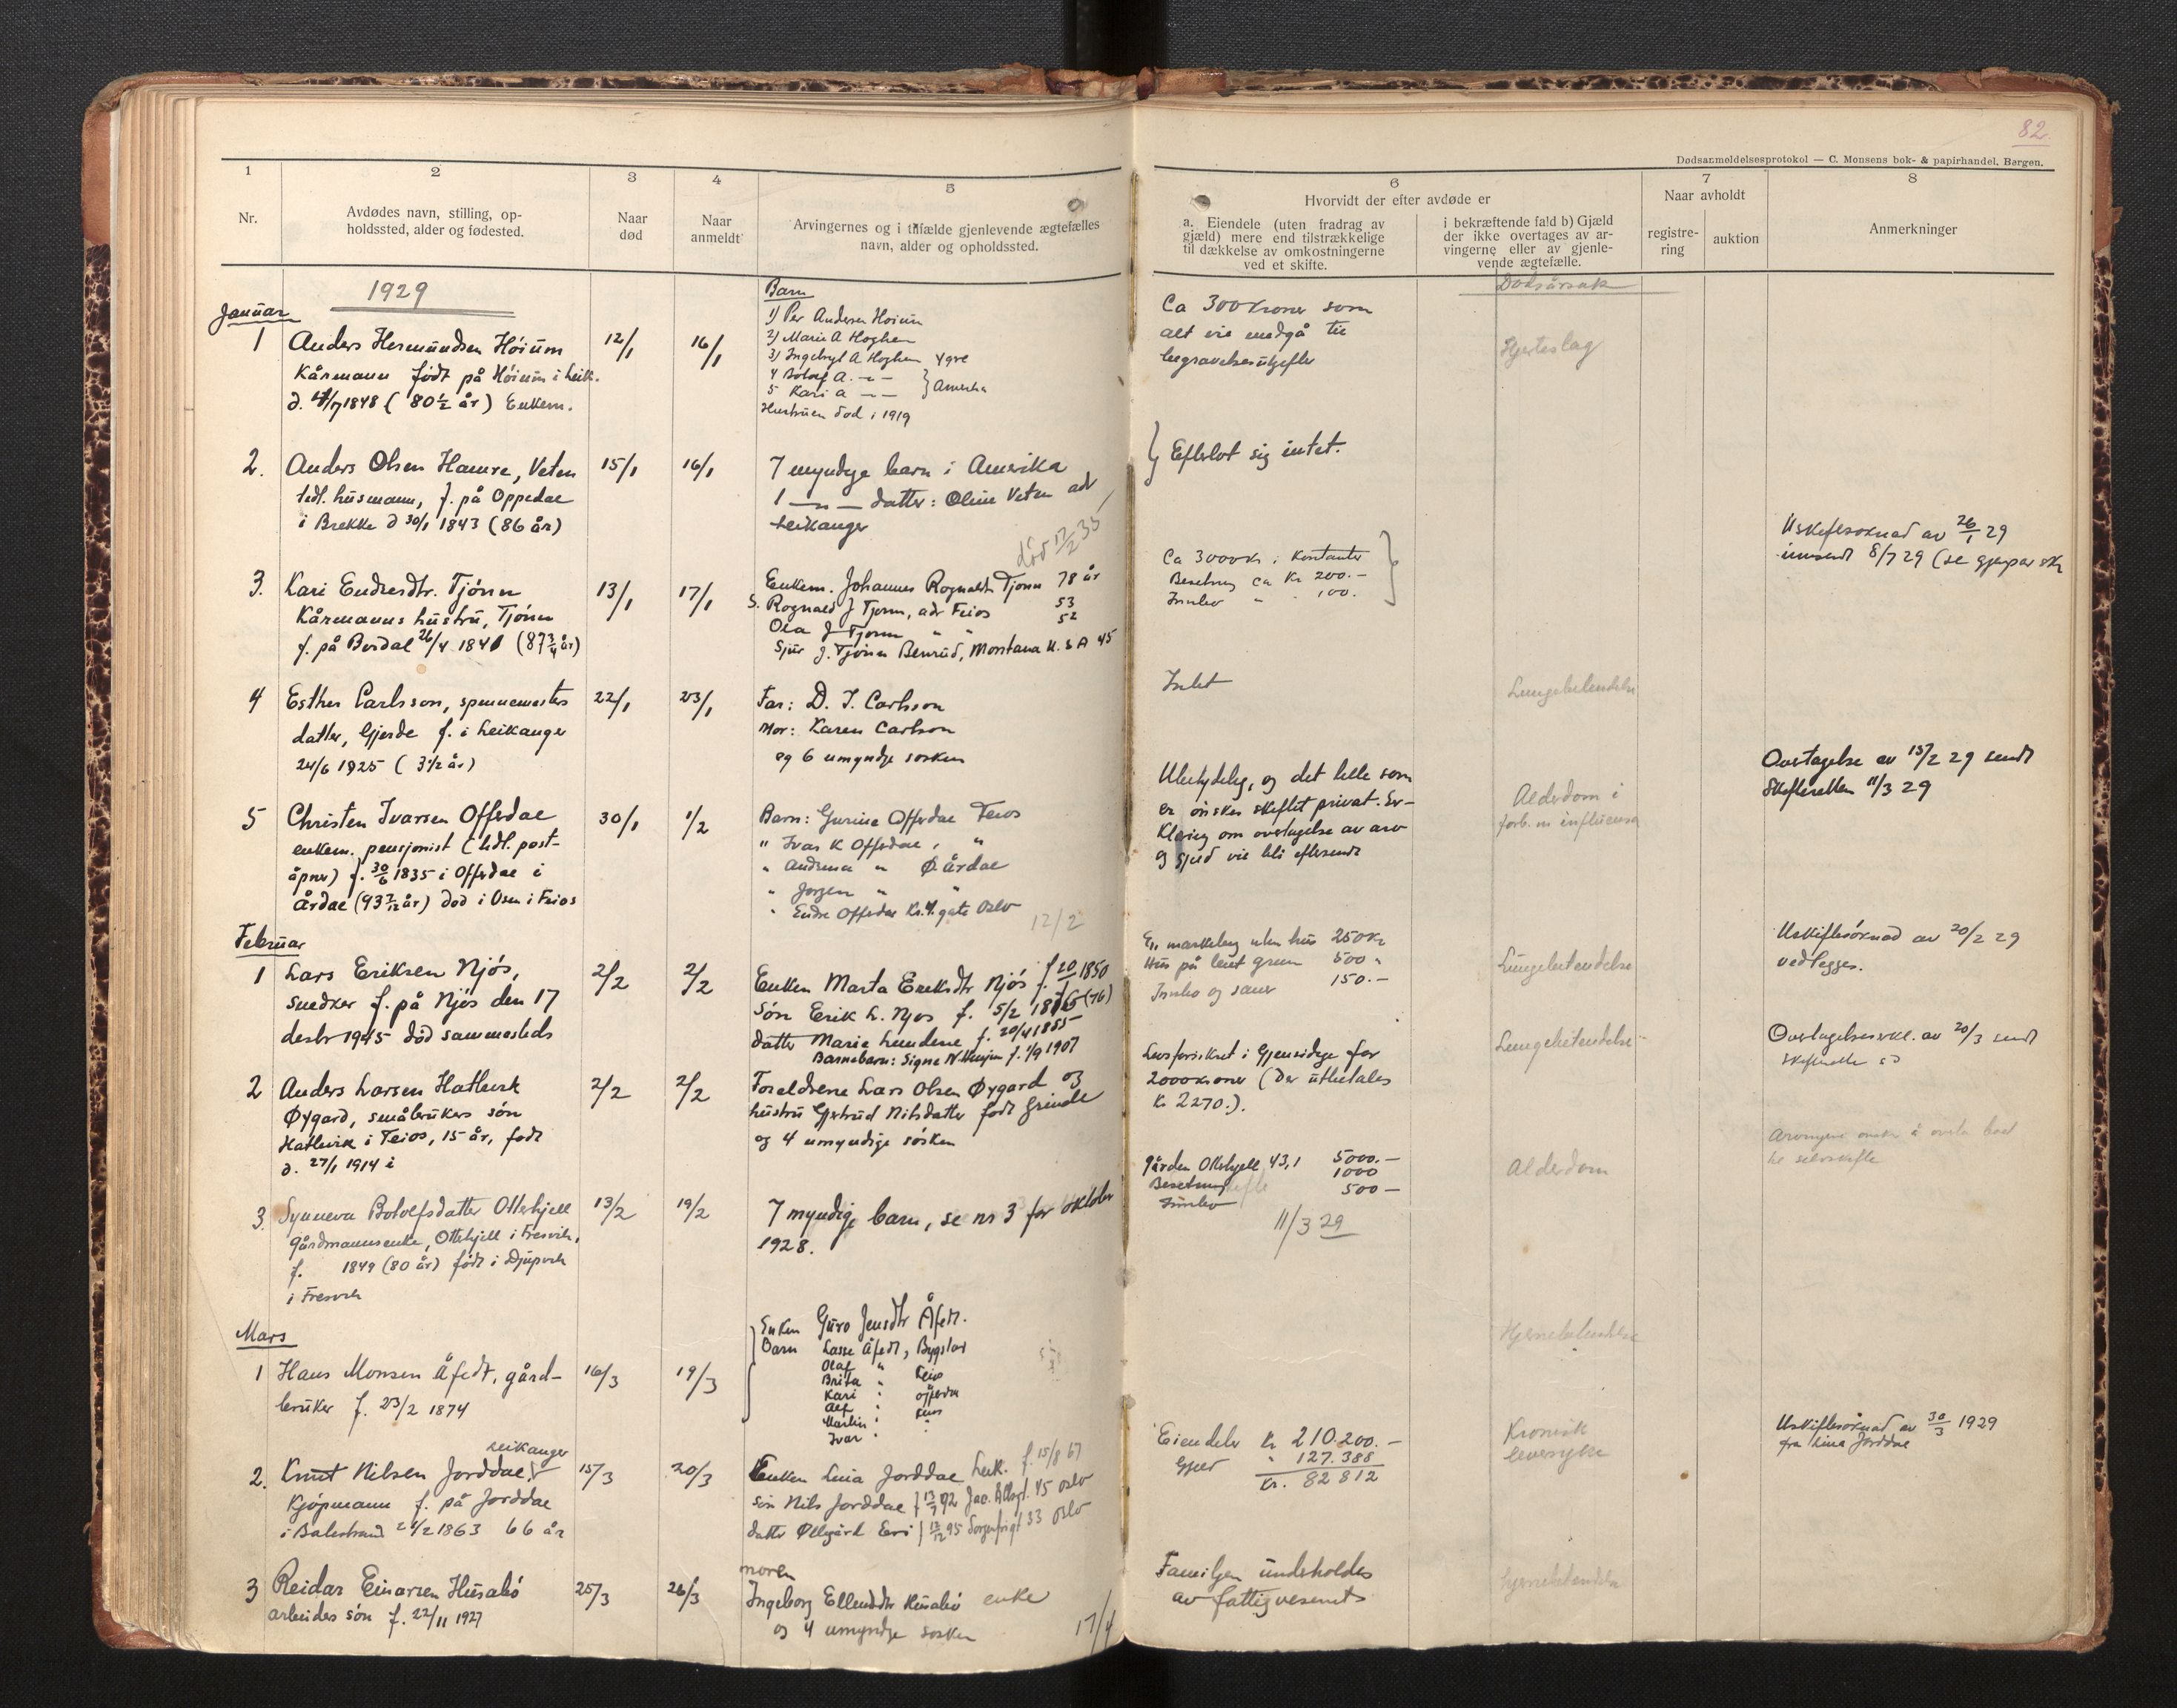 82
Dødsanmeldelsesprotokol — C. Monsens bok- & papirhandel, Bergen.
1
2
3
4
5
6
7
8
Nr.
Avdødes navn, stilling, op-
holdssted, alder og fødested.
Naar
død
Naar
anmeldt
Arvingernes og i tilfælde gjenlevende ægtefælles
navn, alder og opholdssted.
Hvorvidt der efter avdøde er
a. Eiendele (uten fradrag av
gjæld) mere end tilstrækkelige
til dækkelse av omkostningerne
ved et skifte.
i bekræftende fald b) Gjæld
der ikke overtages av ar-
vingerne eller av gjenle-
vende ægtefælle.
Naar avholdt
registre-
ring
auktion
Anmerkninger
Dødsårsak
1929
Januar
1
Anders Hermundsen Höium
Kårmann født på Höium i Leik.
d. /7 1848 (80½ år) Enkem.
12/1
16/1
Barn
1) Per Andersen Hoium
2) Marie A Hoghem
3) Ingebrgt A Hoghem Ygre
4 Botolf A. — —
5 Kari A — —
} Amerika
Hustruen død i 1919
Ca 300 kroner som
alt vil medgå til
begravelsesutgifter
Hjerteslag
2.
Anders Olsen Hamre, Veten
fedl. husmann, f. på Oppedal
i Brekke d 30/1 1843 (86 år)
15/1
16/1
7 myndige barn i Amerika
1 — " — datter: Oline Veten adr
Leikanger
} Efterlot sig intet.
3.
Kari Endresdtr. Tjönn
Kårmanns hustru, Tjönn
f. på Bordal 26/4 1841 (87¾ år)
13/1
17/1
død 17/2 35
Enkem. Johannes Rognaldsn Tjonn 78 år
S. Rognald J Tjonn, adr Feios 53
Ola J Tjonn " " 52
Sjur J. Tjönn Benrud, Montana U.S.A 45
Ca 3000 kr i kontanter
Besetning ca kr 200.-
Innbo " - 100.
Uskiftesøknad av 26/1 29
innsendt 8/7 29 (se
4
Esther Carlsson, spinnemesters
datter, Gjerde f. i Leikanger
24/6 1925 (3½ år)
22/1
23/1
Far: D. I. Carlsson
Mor: Karen Carlson
og 6 umyndge søsken
Intet
Lungebetendelse
5
Christen Ivarsen Offerdal
enkem. pensjonist (fedl. post-
åpner) f. 30/6 1835 i Offerdal i
Årdal (93 7/12 år) død i Osen i Feios
30/1
1/2
Barn: Gurine Offerdal Feios
" Ivar K Offerdal , "
" Andrina " Ø Årdal
" Jorgen " "
" Endre Offerdal Kr. 4. gate Oslo
12/2
Ubetydelig, og det lille som
er ønskes skiftet privat. Er-
klæring om overtagelse av arv
og gjeld vil bli eftersendt
Alderdom i
forb. m influensa
Overtagelse av 15/2 29 sendt
Skifteretten 11/3 29
Februar
1
Lars Eriksen Njös,
Snedker f. på Njös den 17
desbr 1945 död sammesteds
2/2
2/2
Enken Marta Eriksdtr Njös f. 20/ 1850
Sön Erik L. Njos f. 5/2 1876 (76)
datter Marie Lundene f. 20/4 1885
Barnebarn: Signe N. f. 1/9 1907
En markeleng uten hus 250 kr
Hus på leiet grunn 500 "
Innbo og sauer 150.-
Lungebetendelse
Uskiftesöknad av 20/2 29
vedlegges.
2
Anders Larsen Hatlevik
Øygard, småbrukers sön
Hatlevik i Feios, 15 år, født
d. 27/1 1914 i
2/2
2/2
Foreldrene Lars Olsen Øygard og
hustru Gjertrud Nilsdatter født Grinde
og 4 umyndige sösken
Livsforsikret i Gjensidige for
2000 kroner (Der utbetales
Kr 2270.).
Lungebetendelse
Overtagelseserkl. av 20/3 sendt
Skifteretten s d
3
Synneva Botolfsdatter Otterhjell
gårdmannsenke, Ottehjell i Fresvik,
f. 1849 (80 år) född i Djupvik
i Fresvik
13/2
19/2
7 myndige barn, se nr 3 for oktober
1928.
gården Ottehjell 43,1 5000.—
Besetning 1000
Innbo 500 —
11/3 29
Alderdom
Arvingene ønsker å overta boet
til selvskifte
Mars
1
Hans Monsen Åfedt, gård-
bruker f. 23/2 1874
16/3
19/3
Enken Guro Jensdtr Åfedt.
Barn Lasse Åfedt, Bygstad
Olaf " Feios
Brita "
Kari " Offerdal
Alf " Feios
Martin "
Ivar "
Hjernebetendelse
2.
Leikanger
Knut Nilsen Jorddal
Kjöpmann f. på Jorddal
i Balestrand 2/2 1863 66 år
15/3
20/3
Enken Lina Jorddal Leik. f. 15/8 67
Sön Nils Jorddal f 13/7 92 Jac. Allsgt. 45 Oslo
datter Øllegård Eeri f 12/12 95 Sorgenfrigt 33 Oslo
Eiendeler Kr 210.200.—
Gjeld " 127.388
Kr. 82 812
Kronisk
leversyke
Uskiftesöknad av 30/3 1929
fra Lina Jorddal
3
Reidar Einarsen Husabö
arbeides sön f. 22/11 1927
25/3
26/3
moren
Ingeborg Ellendtr Husabö enke
og 4 umyndge sosken
17/4
Familjen underholdes
av fattigvesenet
Hjernebetendelse